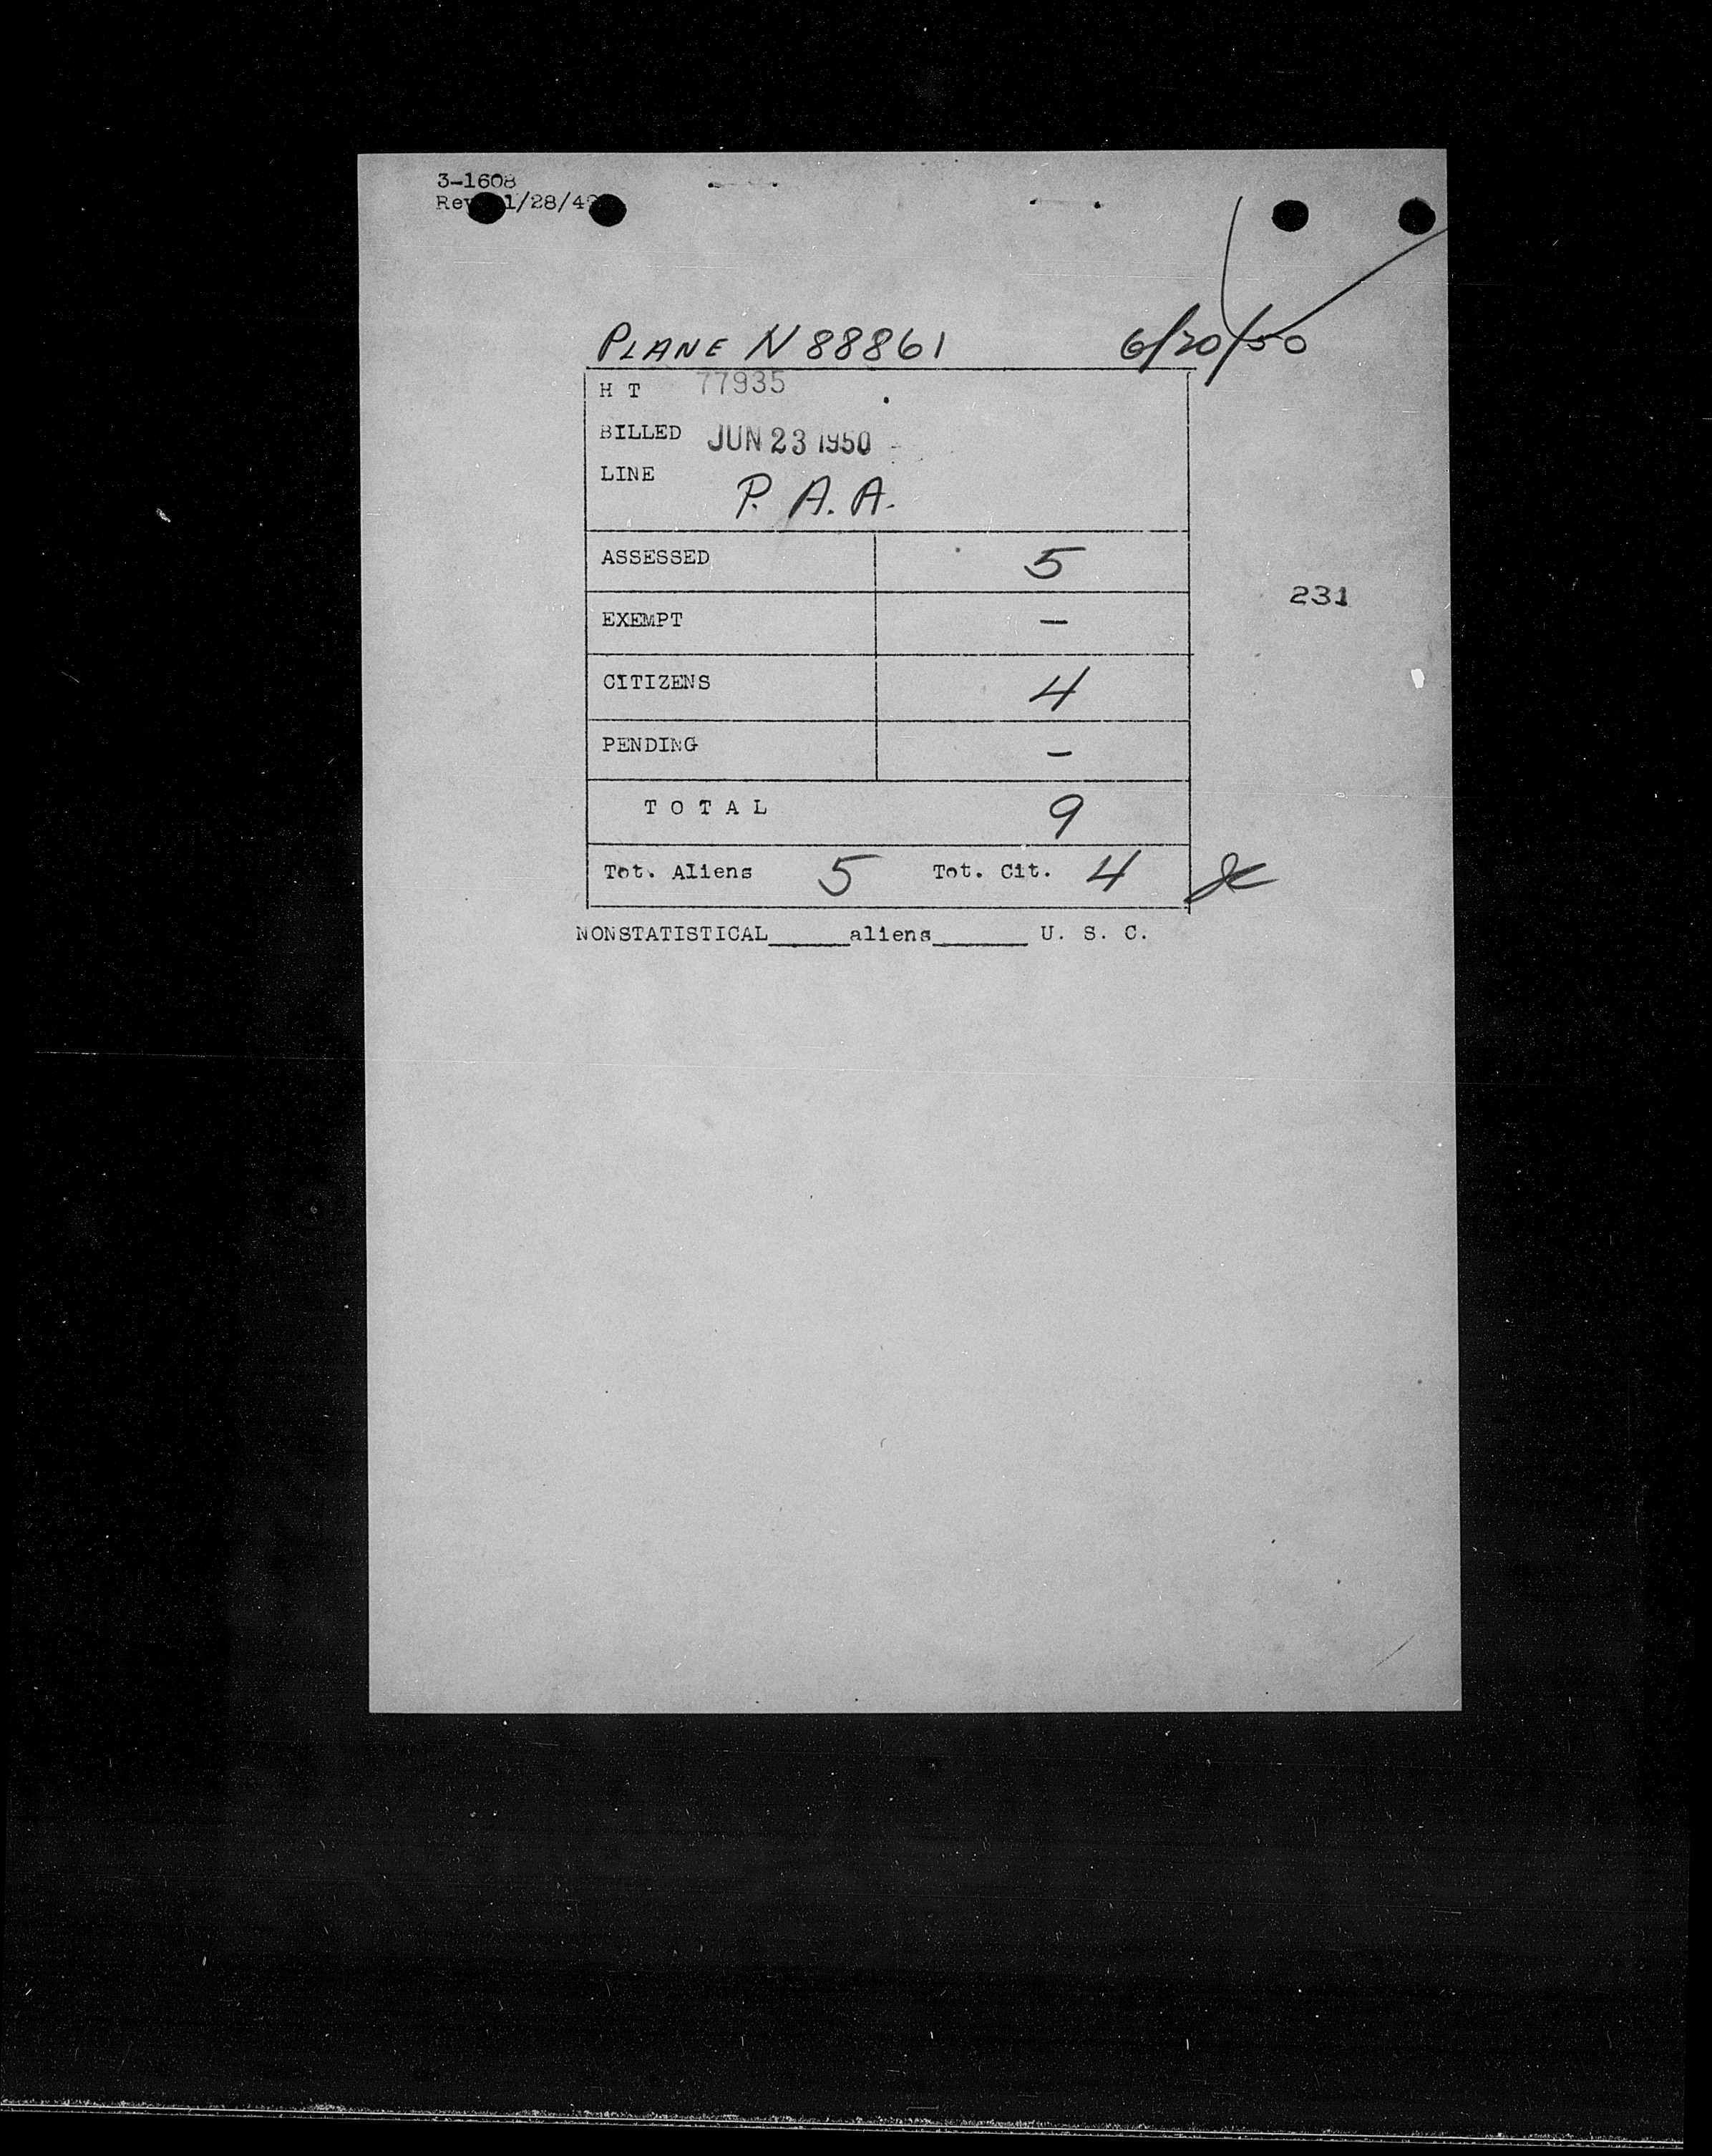 3-1608
Rev 1/28/49
PLANE N 88861 6/20/50
H T 77935
BILLED JUN 23 1950
LINE
P. A. A.
ASSESSED 5
231
EXEMPT —
CITIZENS 4
PENDING —
T O T A L 9
Tot. Aliens 5 Tot. Cit. 4
NONSTATISTICAL______aliens_______ U. S. C.